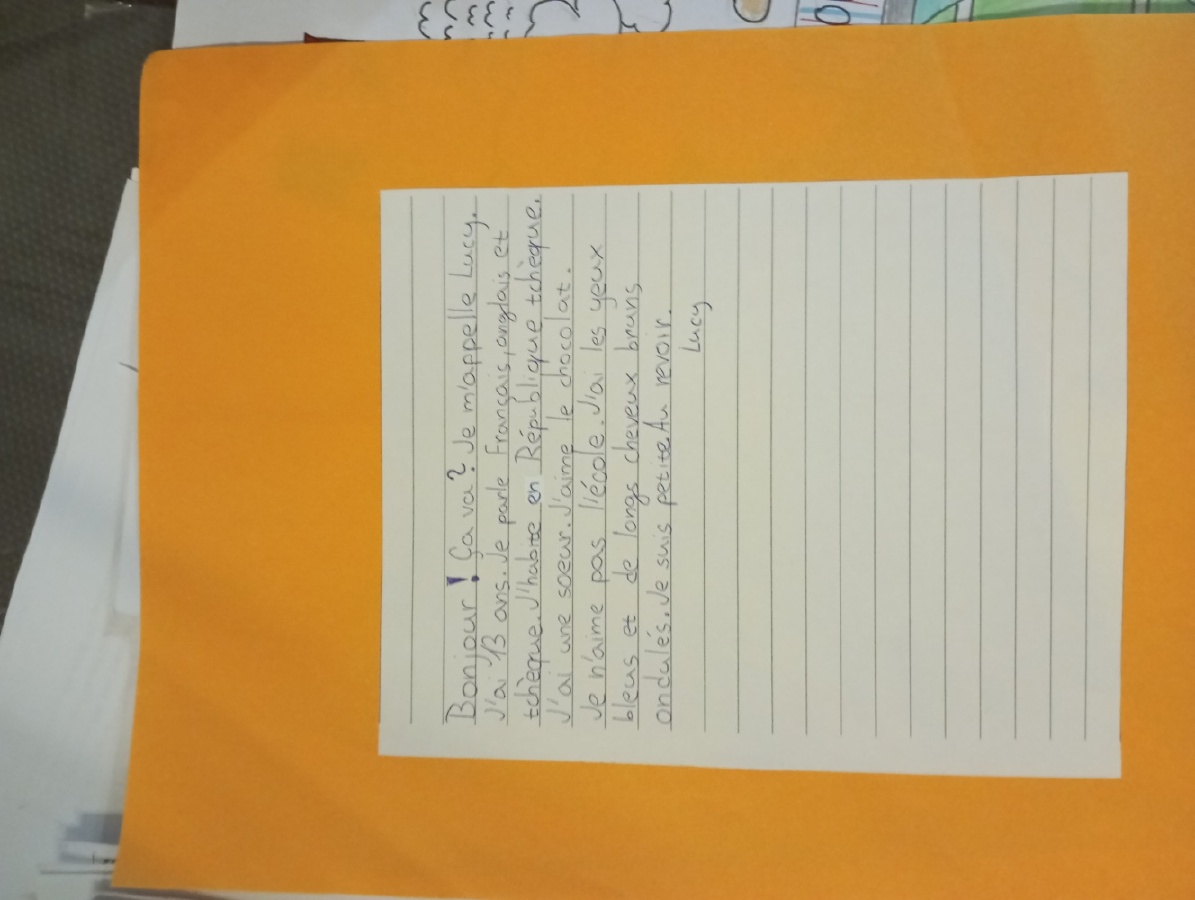 Bonjour! Ça va? Je m'appelle Lucy.
J'ai 13 ans. Je parle Français, anglais et
tchèque. J'habite en République tchèque.
J'ai une soeur. J'aime le chocolat.
Je n'aime pas l'école. J'ai les yeux
bleus et de longs cheveux bruns
ondulés. Je suis petite. Au revoir.
Lucy